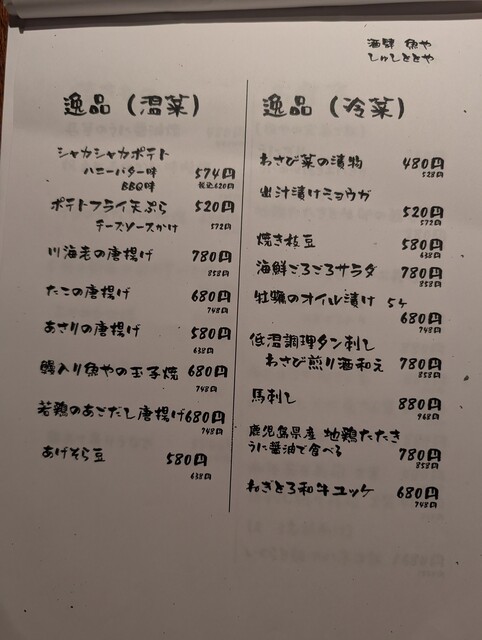 酒肆 魚や
しゅしととや
逸品（温菜）
シャカシャカポテト
ハニーバター味 574円
BBQ味 税込620円
ポテトフライ天ぷら 520円
チーズソースかけ 572円
川海老の唐揚げ 780円
858円
たこの唐揚げ 680円
748円
あさりの唐揚げ 580円
638円
鰻入り魚やの玉子焼 680円
748円
若鶏のあごだし唐揚げ 680円
748円
あげそら豆 580円
638円
逸品（冷菜）
わさび菜の漬物 480円
528円
出汁漬けミョウガ
520円
572円
焼き枝豆 580円
638円
海鮮ごろごろサラダ 780円
858円
牡蠣のオイル漬け 5ヶ
680円
748円
低温調理タン刺し
わさび煎り酒和え 780円
858円
馬刺し 880円
968円
鹿児島県産 地鶏たたき
うに醤油で食べる 780円
858円
ねぎとろ和牛ユッケ 680円
748円